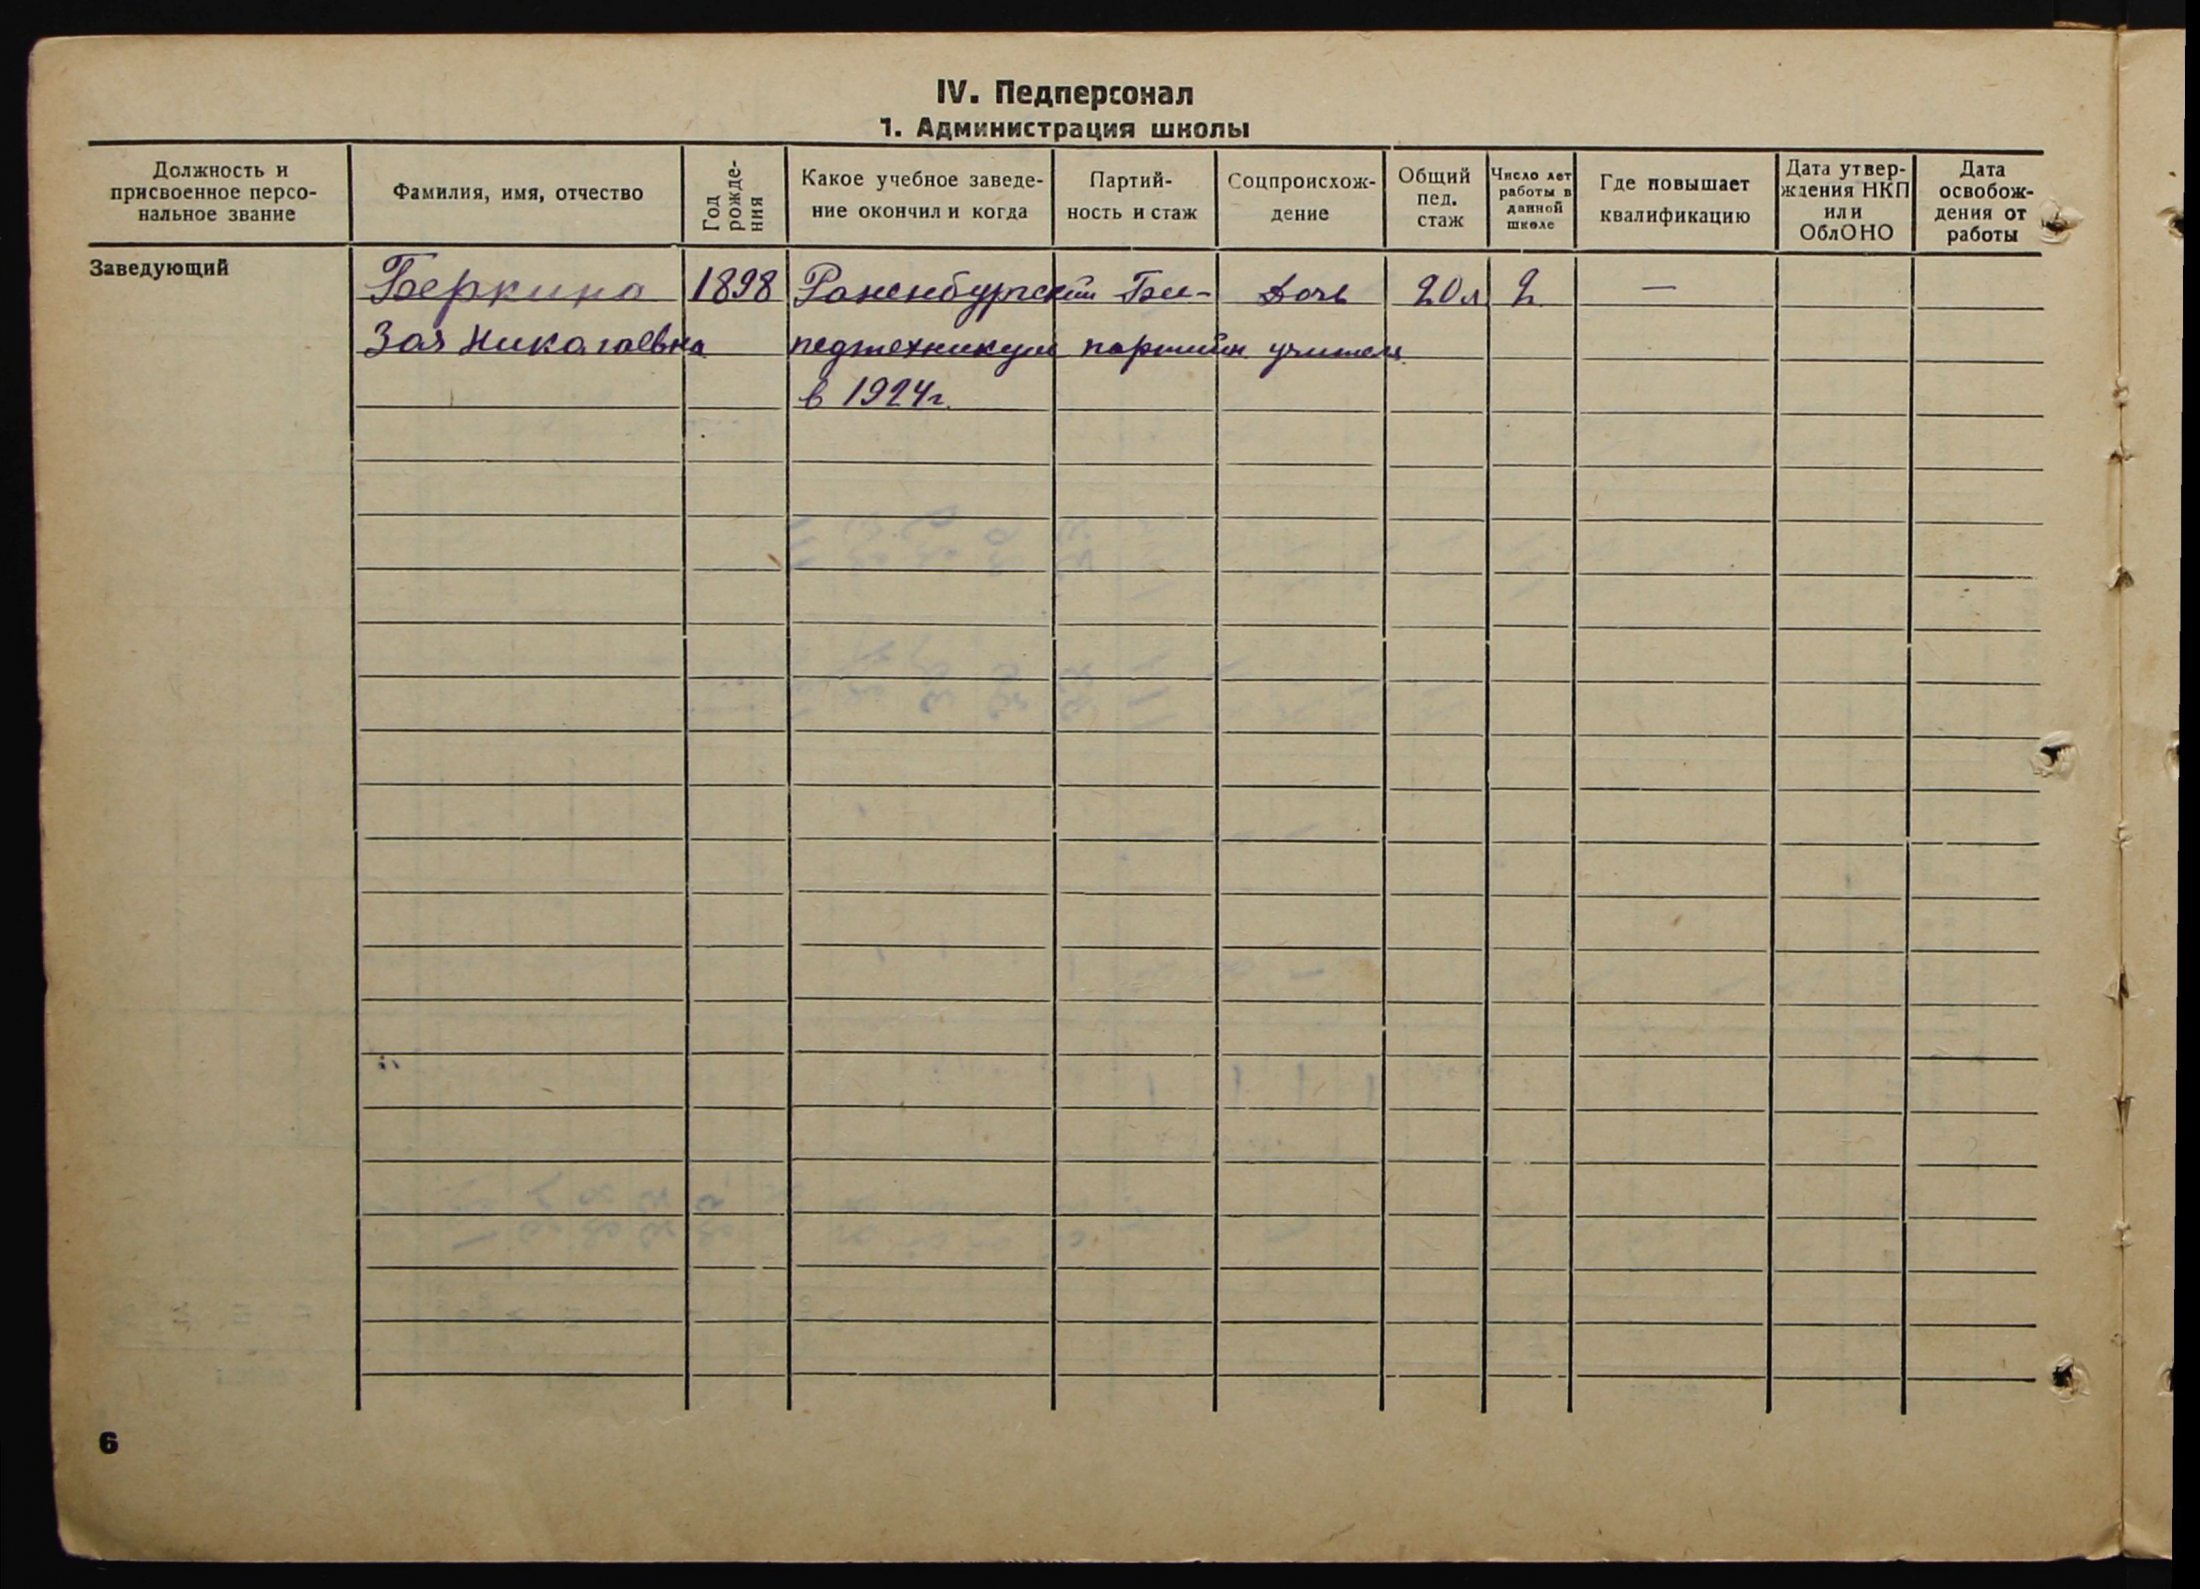 IV. Педперсонал
1. Администрация школы
Должность и присвоенное персо-нальное звание
Фамилия, имя, отчество
Год рожде-ния
Какое учебное заведе-ние окончил и когда
Партий-ность и стаж
Соцпроисхож-дение
Общий пед. стаж
Число лет работы в данной школе
Где повышает квалификацию
Дата утвер-ждения НКП или ОблОНО
Дата освобож-дения от работы
Заведующий Беркина 1898 Раненбургский Бес- дочь 20л 2 —
Зоя Николаевна педтехникум партийн учителя
в 1924г.
6